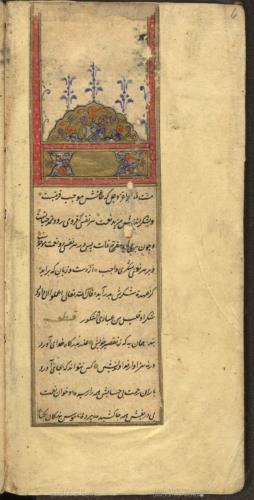 منت خدایرا عز و جل که طاعتش موجب قربتست
و بشکر اندرش مزید نعمت هر نفسی که فرو می رود ممد حیاتست
و چون بر می آید مفرح ذات پس در هر نفسی دو نعمت موجود
و بر هر نعمتی شکری واجب از دست و زبان که برآید
کز عهده شکرش بدر آید قال الله تعالی اعملوا آل داود
شکرا و قلیل من عبادی الشکور قطعه
بنده همان به که ز تقصیر خویش عذر بدرگاه خدای آورد
ورنه سزاوار خداوندیش کس نتواند که بجای آورد
باران رحمت بی حسابش همه را رسیده و خوان نعمت
بی دریغش همه جا کشیده پرده ناموس بندگان